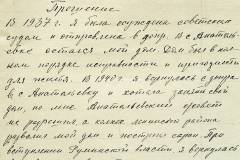 Прошение
В 1937 г. я была осуждена советским
судом и отправлена в допр. В с. Анатоль-
евке остался мой дом. Дом был в пол-
ном порядке исправности и пригодности
для жилья. В 1940 г. я вернулась с допра
в с. Анатольевку и хотела занять свой
дом, но мне Анатольевский сельсовет
не разрешил, а
района
мой дом и построил сарай. При
вступлении Румынской власти я вернулась